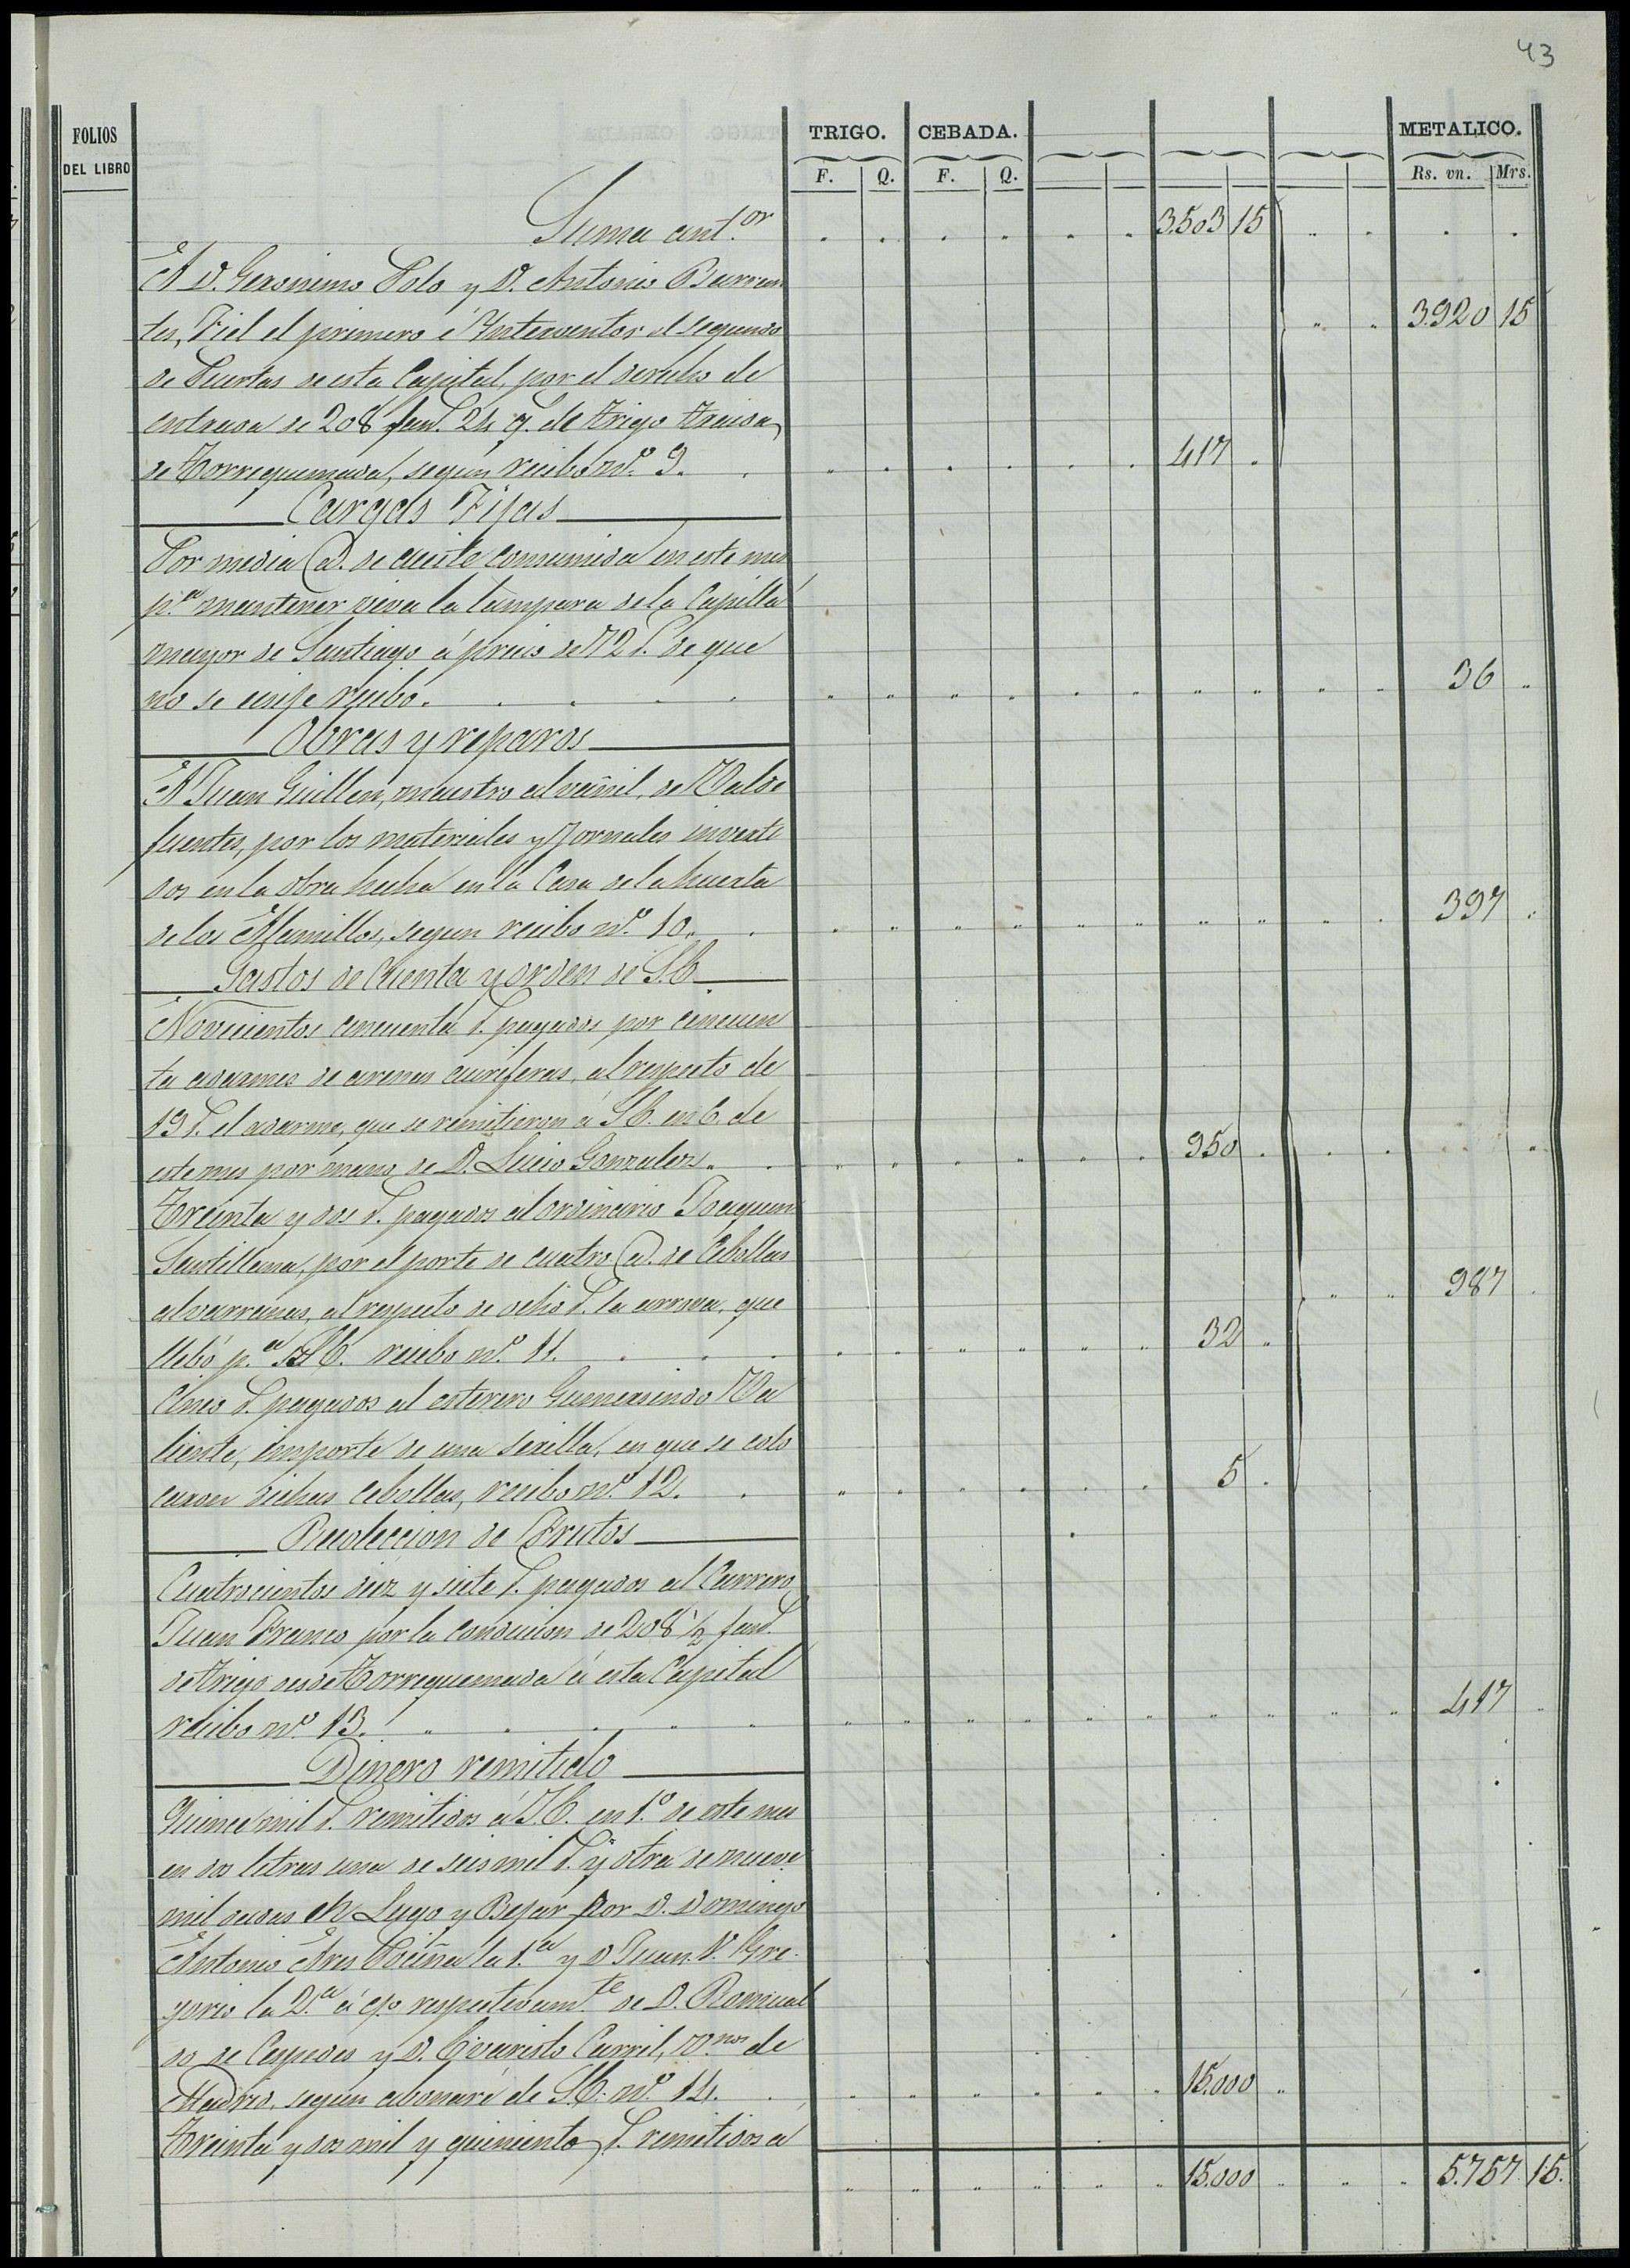 43
FOLIOS DEL LIBRO TRIGO. CEBADA. METALICO.
F. Q. F. Q. Rs. vn. Mrs.
Suma ant.or 3.503 15
A D. Geronimo Polo y D. Antonio Barran
tes, Fiel el primero é Interventor el segundo 3.920 15
de Puertas de esta Capital, por el derecho de
entrada de 208 fan.s 24 q.s de trigo traida
de Torrequemada, segun recibo n.º 9. 417
Cargas Fijas
Por media @. de aceite consumida en este mes
p.a mantener viva la lampara de la Capilla
mayor de Santiago á precio de 72 r.s de que
no se exige recibo. 36
Obras y reparos
A Juan Guillen, maestro alvañil, de Valde
fuentes, por los materiales y Jornales inverti
dos en la obra hecha en la Casa de la huerta
de los Mamillos, segun recibo n.º 10. 397
Gastos de Cuenta y orden de S.E.
Novecientos cincuenta r.s pagados por cincuen
ta adarmes de arenas auriferas, al respecto de
19 r.s el adarme, que se remitieron á S.E. en 6. de
este mes por mano de D. Lucio Gonzalez. 950
Treinta y dos r.s pagados al ordinario Joaquin
Santillana, por el porte de cuatro @. de Cebollas
alvarranas, al respecto de ocho r.s la arrova, que 987
llebó p.a S.E. recibo n.º 11. 32
Cinco r.s pagados al esterero Gumersindo Va
liente, importe de una serilla, en que se colo
caron dichas cebollas, recibo n.º 12. 5
Recoleccion de Frutos
Cuatrocientos diez y siete r.s pagados al Carrero
Juan Franco por la conducion de 208 1/2 fan.s
de trigo desde Torrequemada á esta Capital
recibo n.º 13. 417
Dinero remitido
Quince mil r.s remitidos á S.E. en 1.º de este mes
en dos letras una de seis mil r.s y otra de nueve
mil dadas en Lugo y Bejar por D. Domingo
Antonio Ares la 1.a y D Juan V. Gre
gorio la 2.a á c/o respectivam.te de D. Romual
do de Cespedes y D. Evaristo Carril, V.nos de
Madrid, segun abonaré de S.E. n.º 14. 15.000
Treinta y dos mil y quinientos r.s remitidos a
15.000 5.757 15.